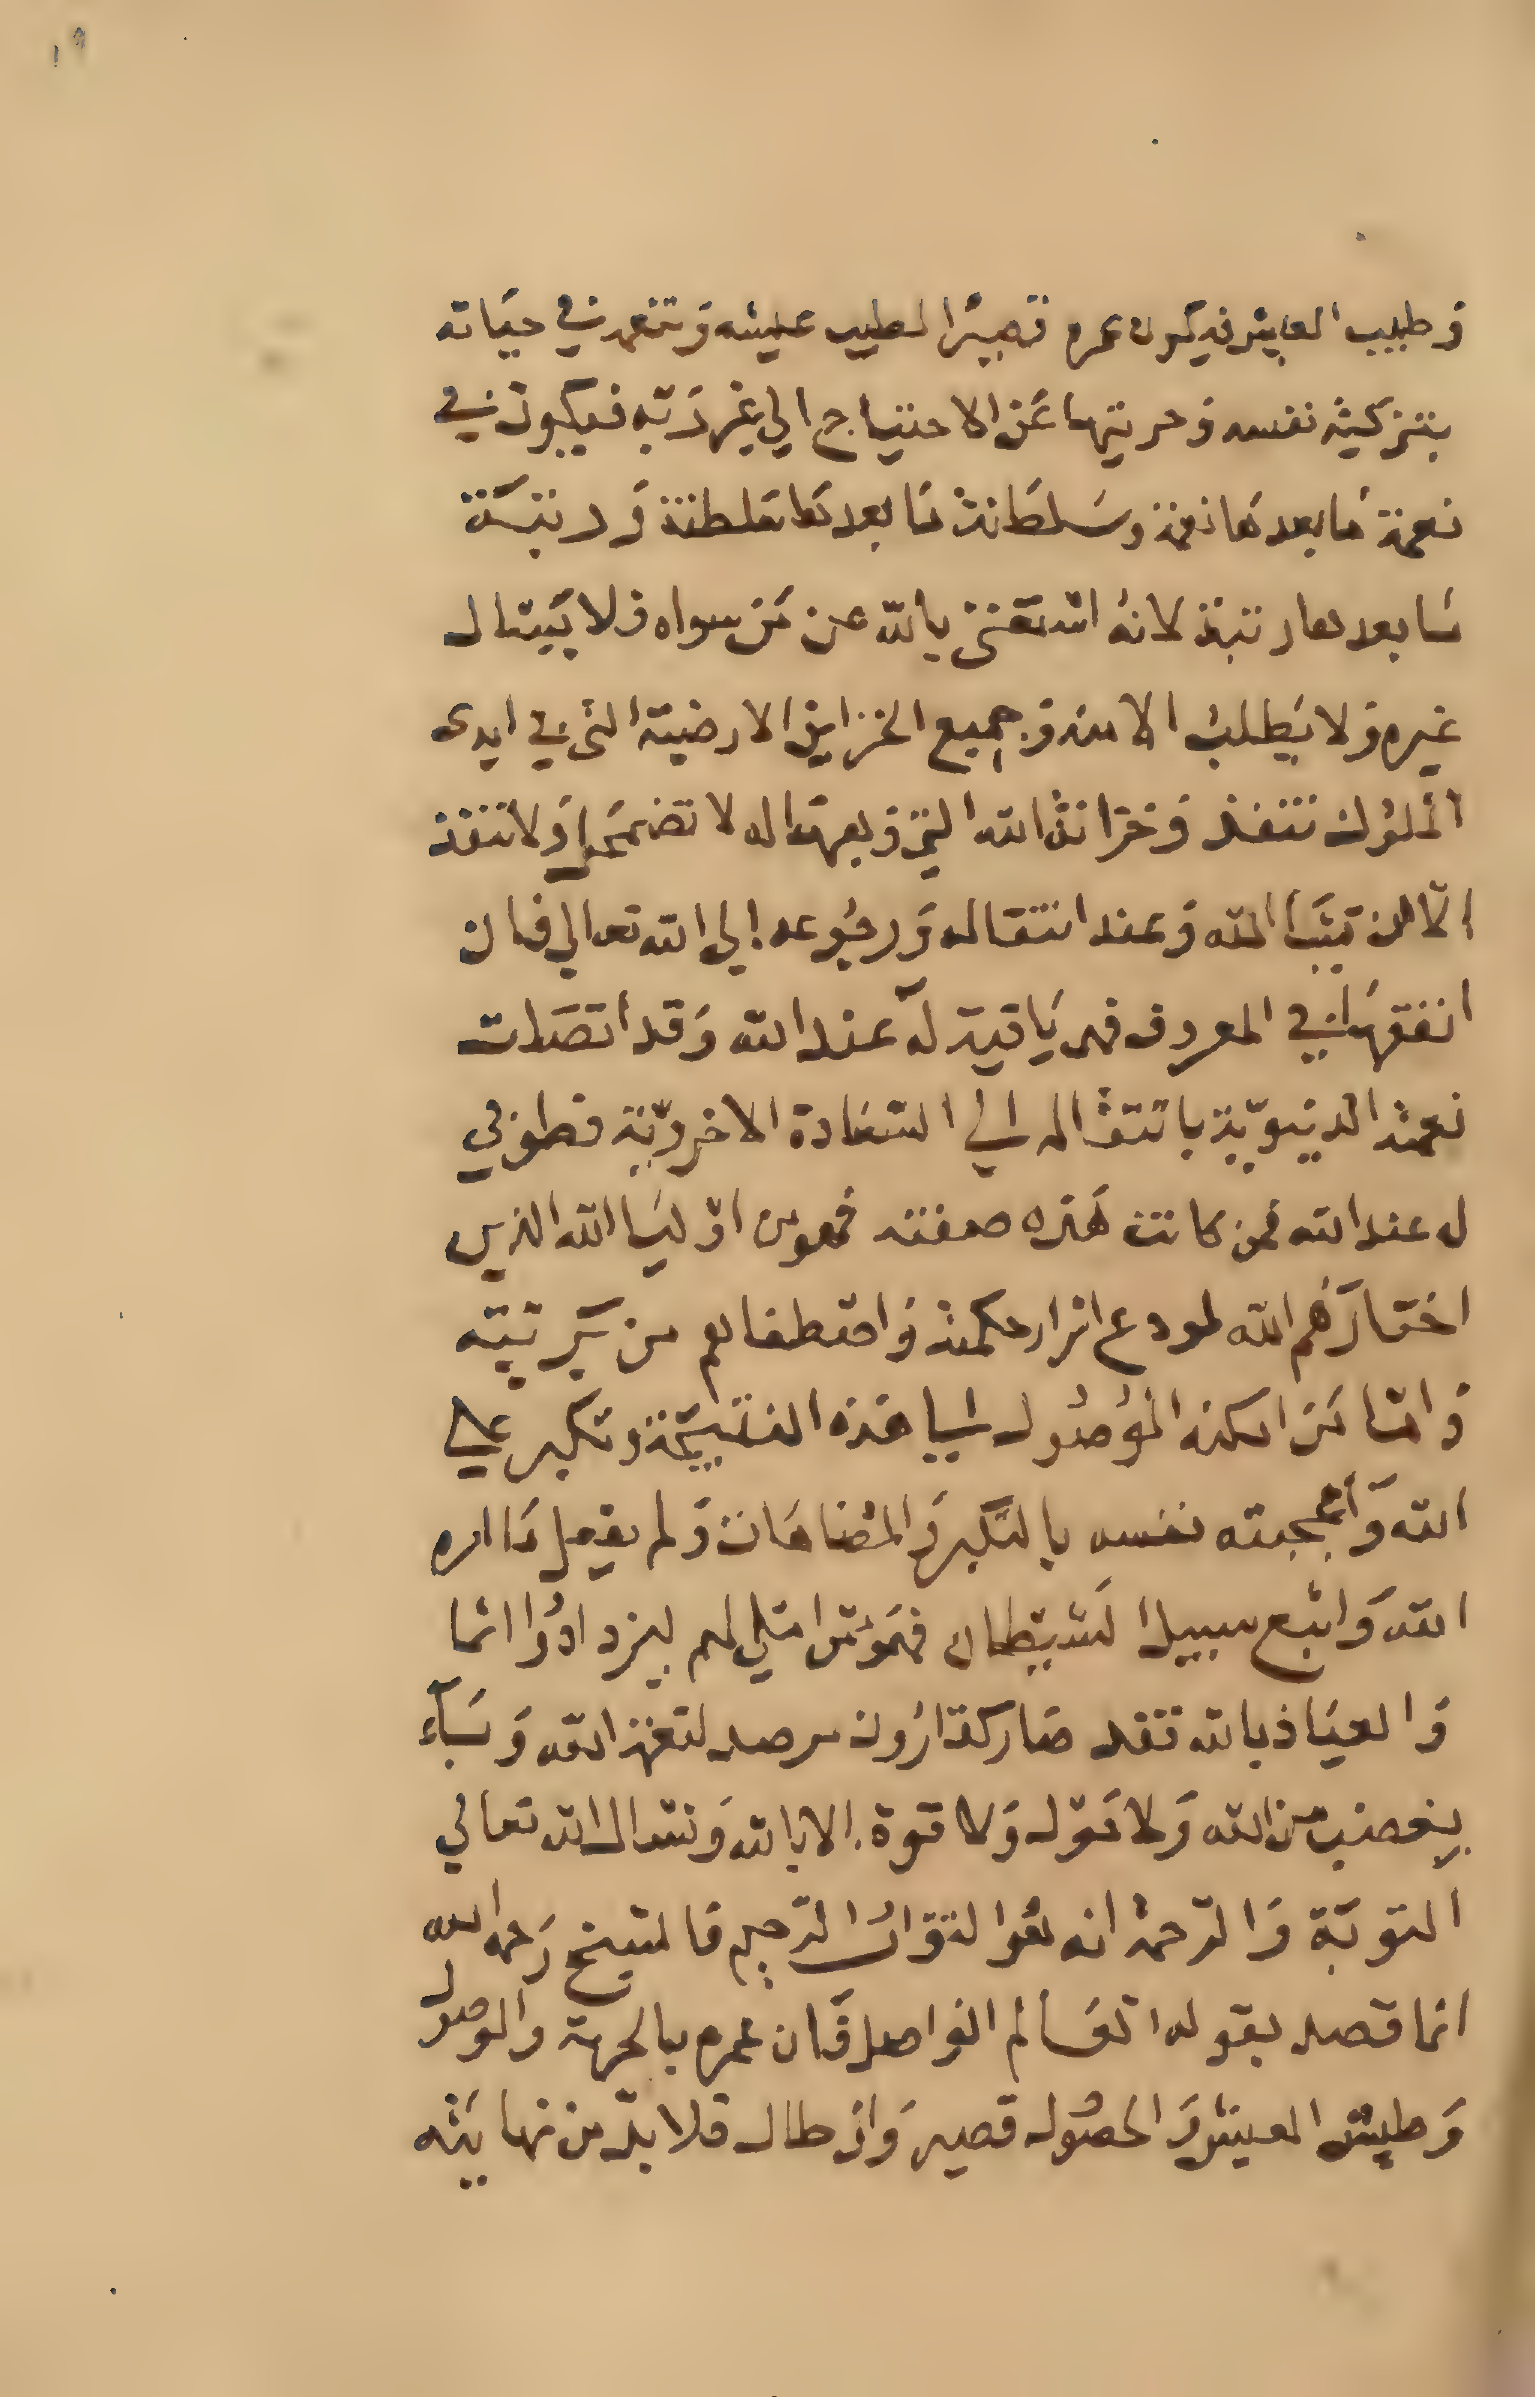 ١٩
وطيب العيش فيكون عمره قصيرًا لطيب عيشه وتنعمه في حياته
بتزكية نفسه وحريتها عن الاحتياج الي غير ربه فيكون في
نعمة ما بعدها نعمة وسلطانة ما بعدها سلطنة ورتبة
ما بعدها رتبة لانه استغنى بالله عن من سواه فلا يسال
غيره ولا يطلب الا منه وجميع الخزاين الارضية التي في ايدى
الملوك تنفذ وخزانة الله التي وهبها له لا تضمحل ولا تنفذ
الا ان يشا الله وعند انتقاله ورجوعه إلي الله تعالي فان
انفقها في المعروف فهى باقية له عند الله وقد اتصلت
نعمته الدنيوية بانتقاله الي السعادة الاخروية فطوبي
له عند الله فمن كانت هذه صفته فهو من اوليا الله الذين
اختارهم الله لمودع اسرار حكمته واصطفاهم من بريته
واما من امكنه الوصول الي هذه النتيجة وتكبر علي
الله وأعجبته نفسه بالتكبر والمضاهات ولم يفعل ما امره
الله واتبع سبيل الشيطان فهو من املي لهم ليزدادوا اثما
والعياذ بالله فقد صار كقارون مرصد لنعمة الله وباء
بغضب من الله ولا حول ولا قوة الا بالله ونسال الله تعالي
التوبة والرحمة انه هو التواب الرحيم قال الشيخ رحمه الله
انما قصد بقوله العالم الفاضل فان عمره بالحرية والوصول
وطيب العيش والحصول قصير وان طال فلا بد من نهايته